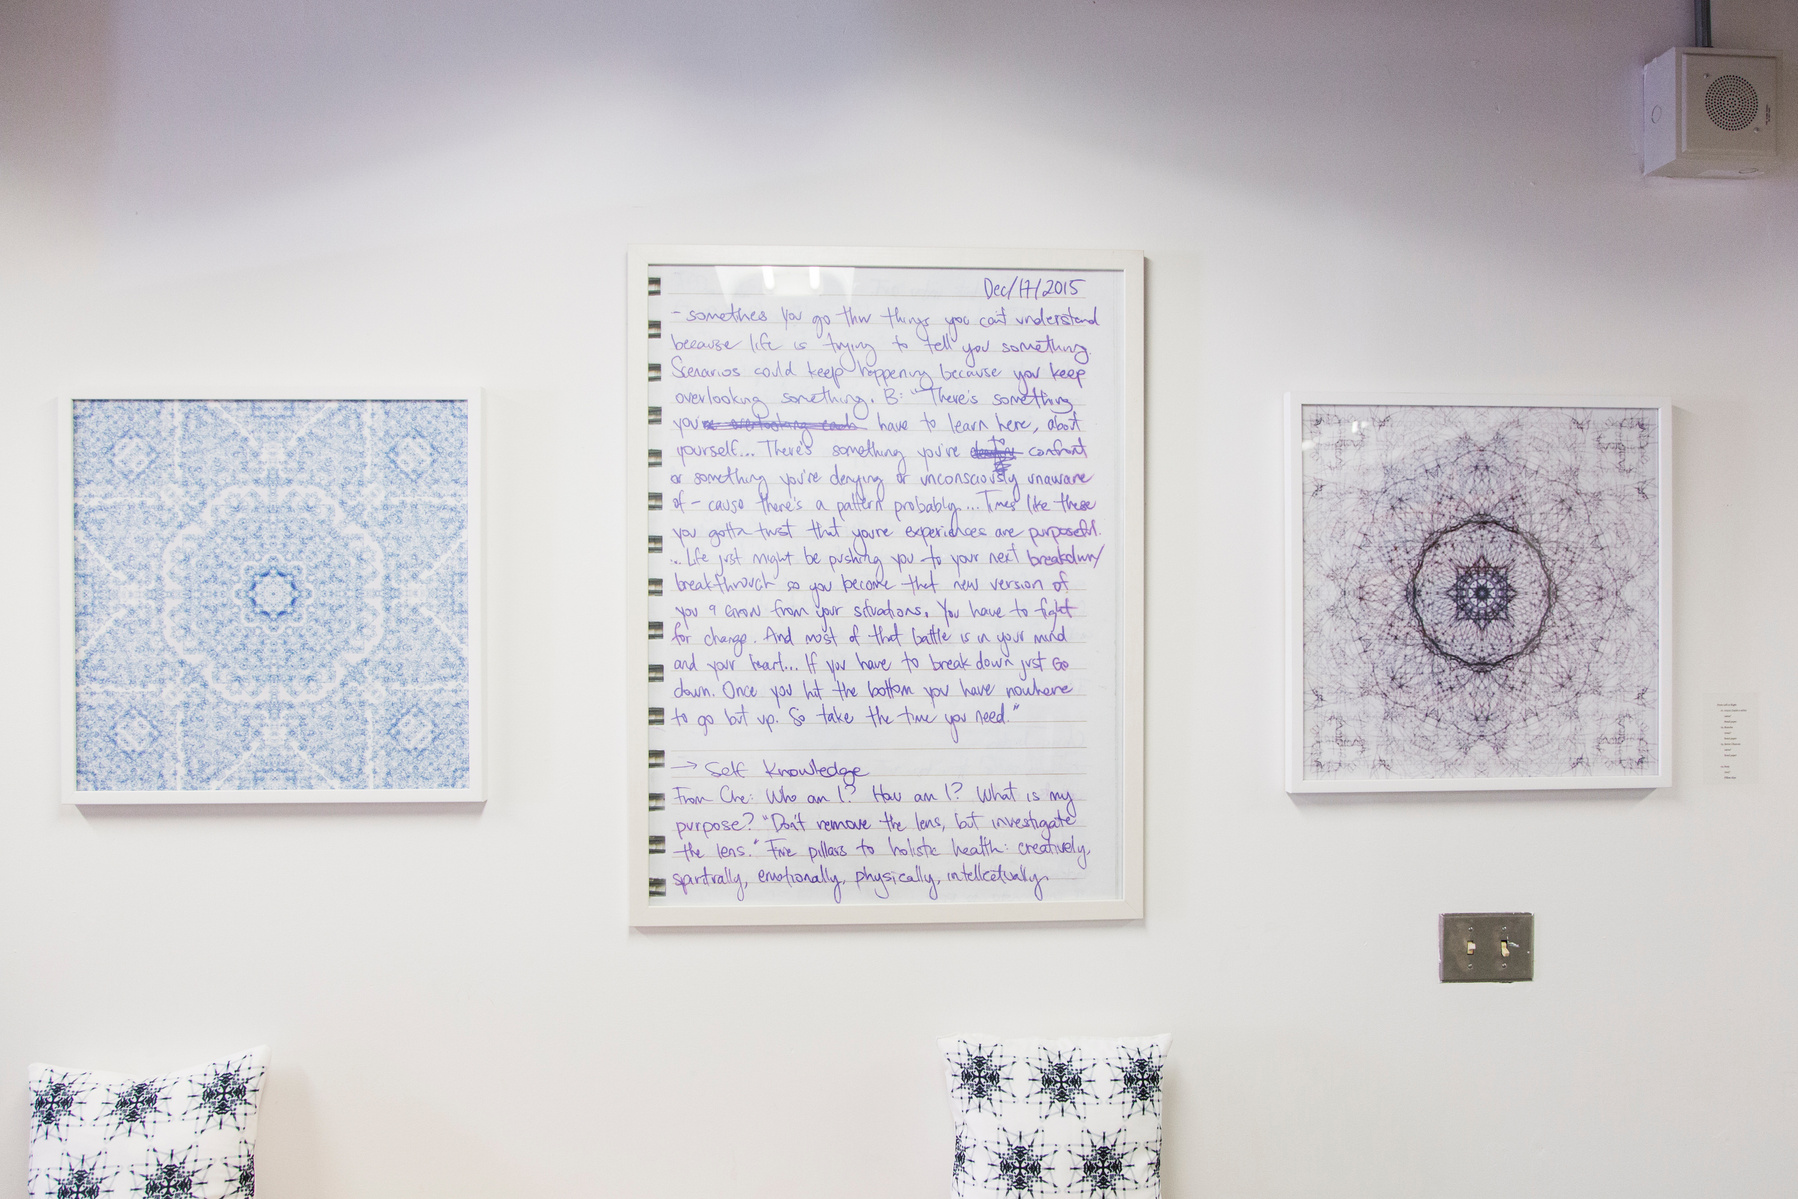 Dec/17/2015
- somethes you go thru things you can't understand
because life is trying to tell you something.
Scenarios could keep happening because you keep
overlooking something. B: "There's something
you're overlooking each have to learn here, about
yourself... There's something you're to confront
or something you're denying or unconsciously unaware
of - cause there's a pattern probably... Times like these
you gotta trust that youre experiences are purposeful.
... Life just might be pushing you to your next breakdown/
breakthrough so you become that new version of
you from your situations. You have to fight
for change. And most of that battle is in your mind
and your heart... If you have to break down just Go
down. Once you hit the bottom you have nowhere
to go but up. So take the time you need."
→ Self Knowledge
From Che: Who am I? How am I? What is my
purpose? "Don't remove the lens, but investigate
the lens." Five pillars to holistic health: creatively,
spiritrally, emotionally, physically, intellectually.